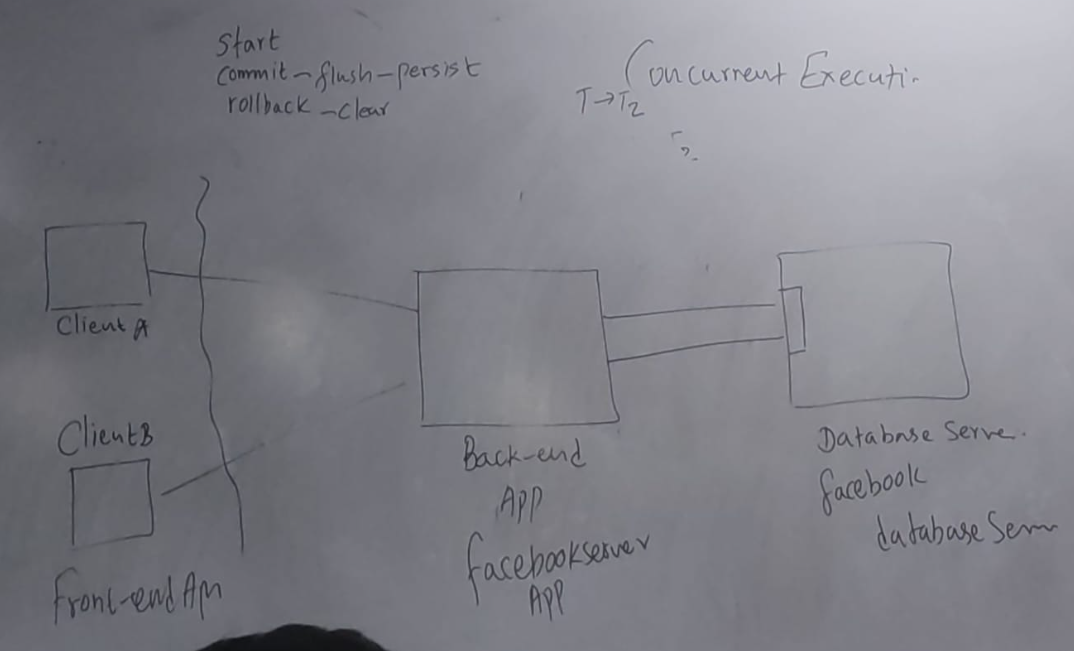 Start
commit - flush - persist
rollback - clear
Concurrent Executi
T→T2
Client A
Client B
Front-end
Back-end
App
facebookserver
App
Database Serve
facebook
database